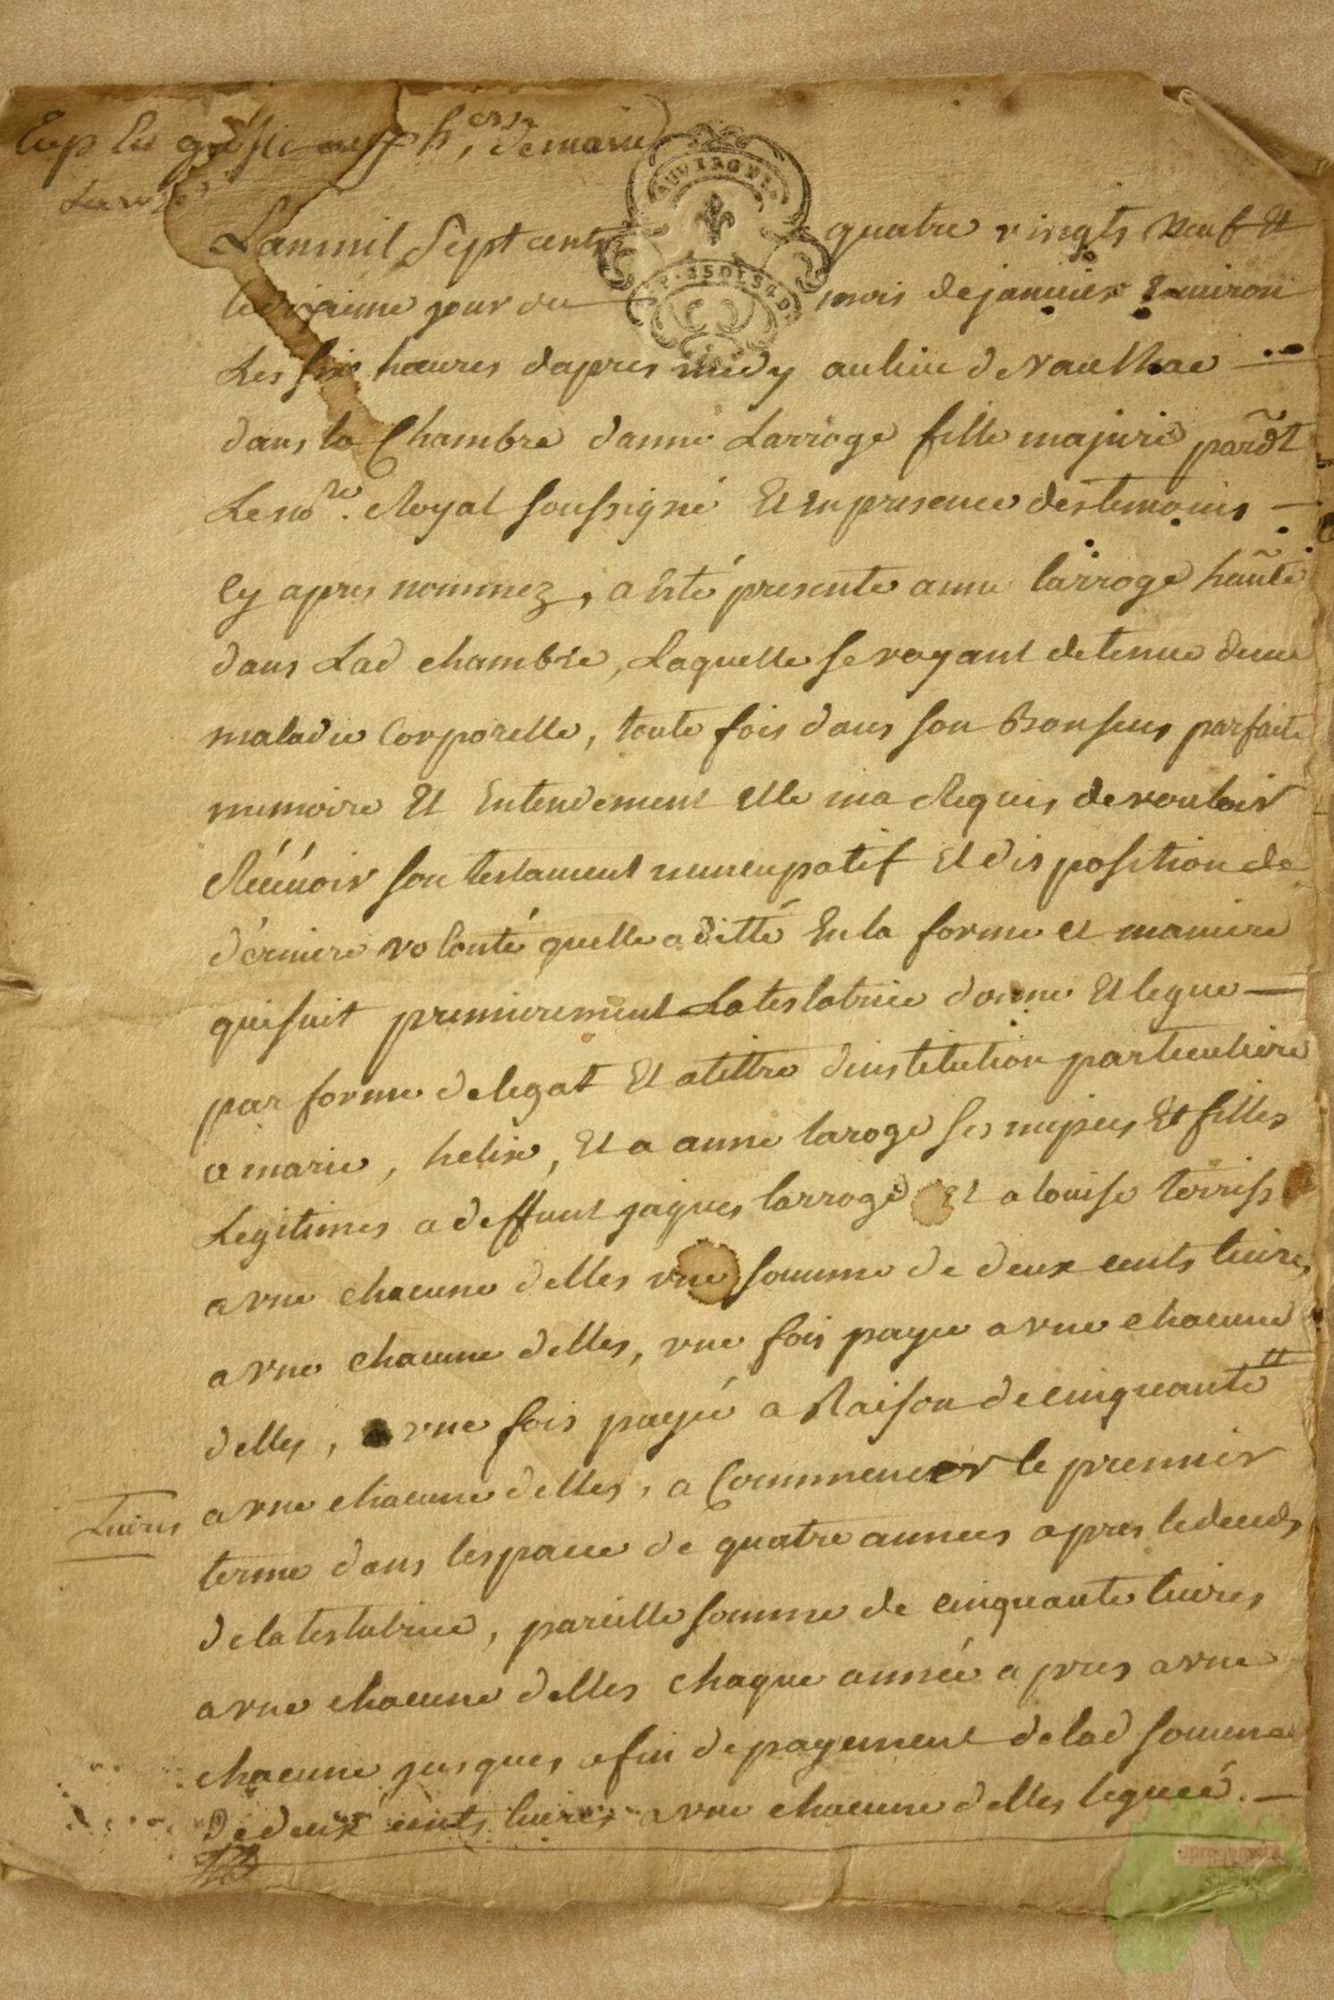 Exp en h.ers de marie
Larroge
L'an mil sept cents quatre vingts neuf Et
AUVERGNE
le dixieme jour du mois de janvier Environ
Les six heures dapres midy au lieu de
dans la Chambre danne Larroge fille majure par̃dt
Le no.re Royal soussigné Et en presence des temoins
Cy apres nommez, a Eté presente anne larroge hãnte
dans Lad chambre, Laquelle se voyant detenue dune
maladie Corporelle, toute fois dans son Bon sens parfaite
memoire Et Entendement Elle ma Requis de vouloir
Récévoir son testament nuncupatif Et disposition de
dérniere volonté quelle a ditté En la forme et maniere
qui suit premierement La testatrice donne Et legue
par forme de legat Et a tittre dinstitution particuliere
a marie, helix, Et a anne laroge ses niepces Et filles
Legitimes a deffunt jaques larroge Et a louise terriss
a vne chacune delles vne somme de deux cents livres
a vne chacune delles, vne fois payee a vne chacune
delles, a vne fois payée a Raison de cinquante
Livres a vne chacune delles, a Commencer le premier
terme dans lespace de quatre annees apres le deceds
de la testatrice, pareille somme de cinquante livres
a vne chacune delles chaque année apres a vne
chacune jusques a fin de payement de lad somme
de deux cents livres a vne chacune delles leguée.